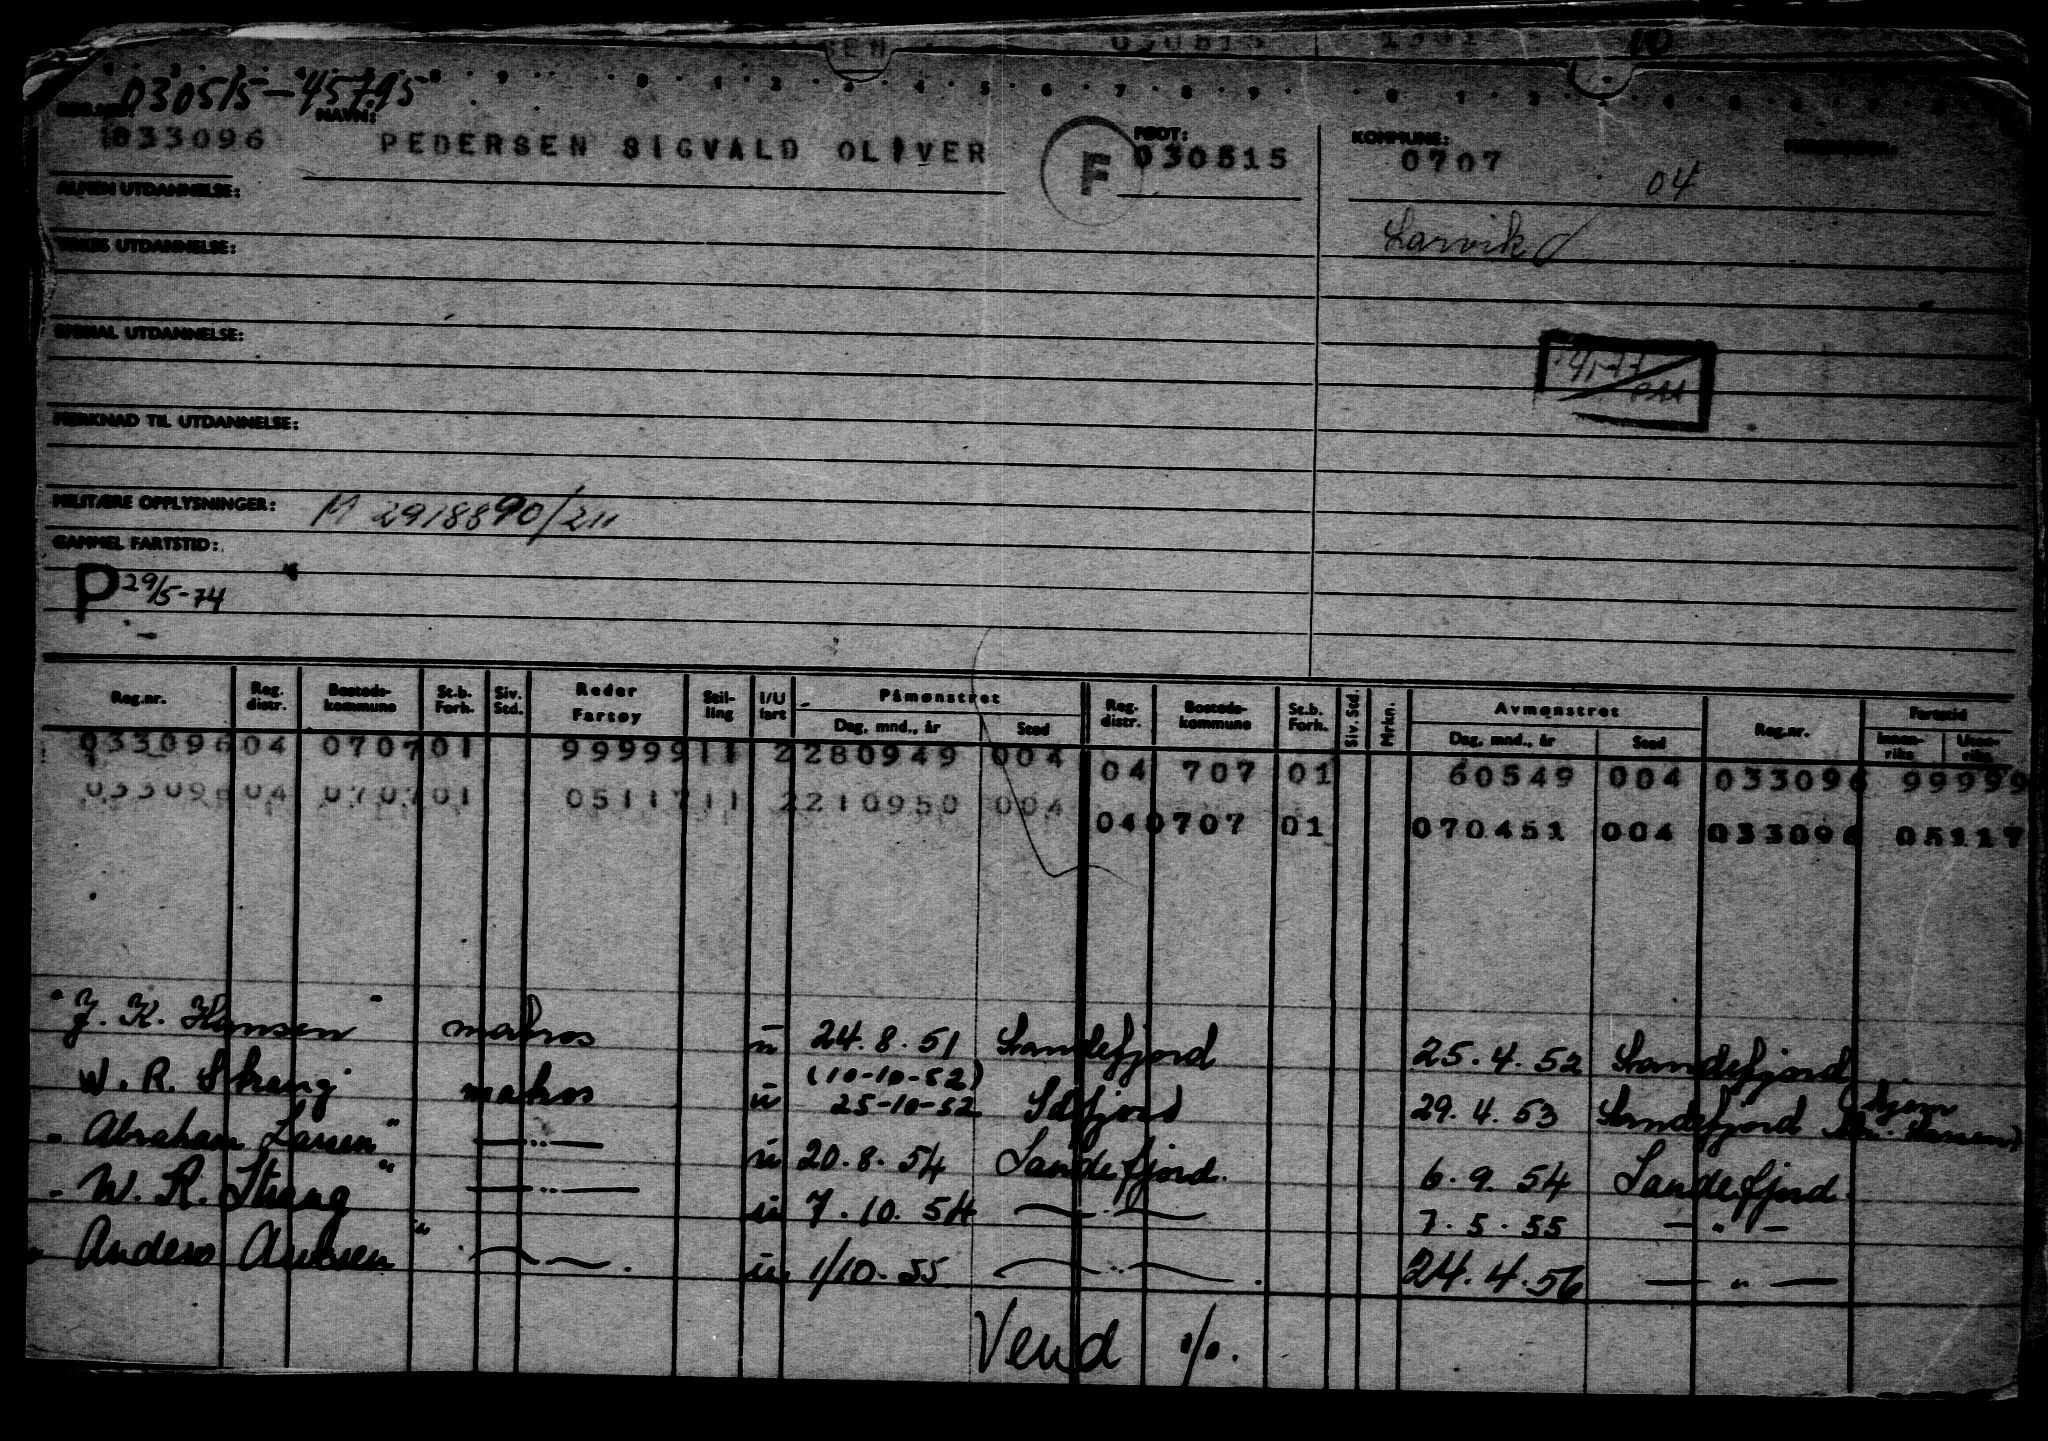 030515-45795
NAVN: FØDT: KOMMUNE:
033096 PEDERSEN SIGVALD OLIVER F 030515 0707
04
ALMEN UTDANNELSE:
Larvik
YRKES UTDANNELSE:
SPESIAL UTDANNELSE:
MERKNAD TIL UTDANNELSE:
MILITÆRE OPPLYSNINGER: M 2918890/211
GAMMEL FARTSTID:
P 29/5-74
Reg.nr. Reg. distr. Bosteds-kommune St.b. Forh. Siv. Std. Reder Fartøy Stil-ling I/U fart Påmønstret Dag, mnd., år Sted Reg. distr. Bosteds-kommune St.b. Forh. Siv. Std. Mrkn. Avmønstret Dag, mnd., år Sted Reg.nr. Fartstid Innen-riks Uten-riks
033096 04 0707 01 99999 11 2 280949 004 04 707 01 60549 004 033096 99999
033096 04 0707 01 05117 11 2 210950 004 04 0707 01 070451 004 033096 05117
"J. K. Hansen" matros u 24.8.51 Sandefjord 25.4.52 Sandefjord
(10-10-52) hjem
W. R. Strøng" matros u 25-10-52 Sdfjord 29.4.53 Sandefjord
"Abraham Larsen" —"— u 20.8.54 Sandefjord. 6.9.54 Sandefjord.
"W. R. Strøng" —"— u 7.10.54 —"— 7.5.55 —"—
"Anders Arvesen" —"—. u 1/10-55 —"—. 24.4.56 —"—
Vend %.